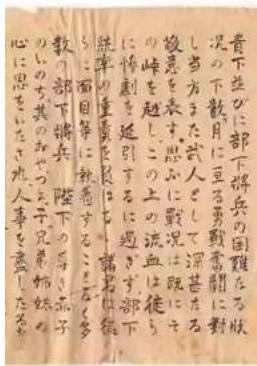 貴下並びに部下將兵の困難なる狀
況の下数月に亘る勇戰奮鬪に對
し当方また武人として深甚なる
敬意を表す、思ふに戰況は既にそ
の峠を越しこの上の流血は徒ら
に惨劇を延引するに過ぎず部下
統率の重責を　諸君は徒
らに面目等に執着することなく多
数の部下將兵　陛下の尊き赤子
のいのち其のおやつま子兄弟姉妹の
心に思をいたされ人事を盡したる